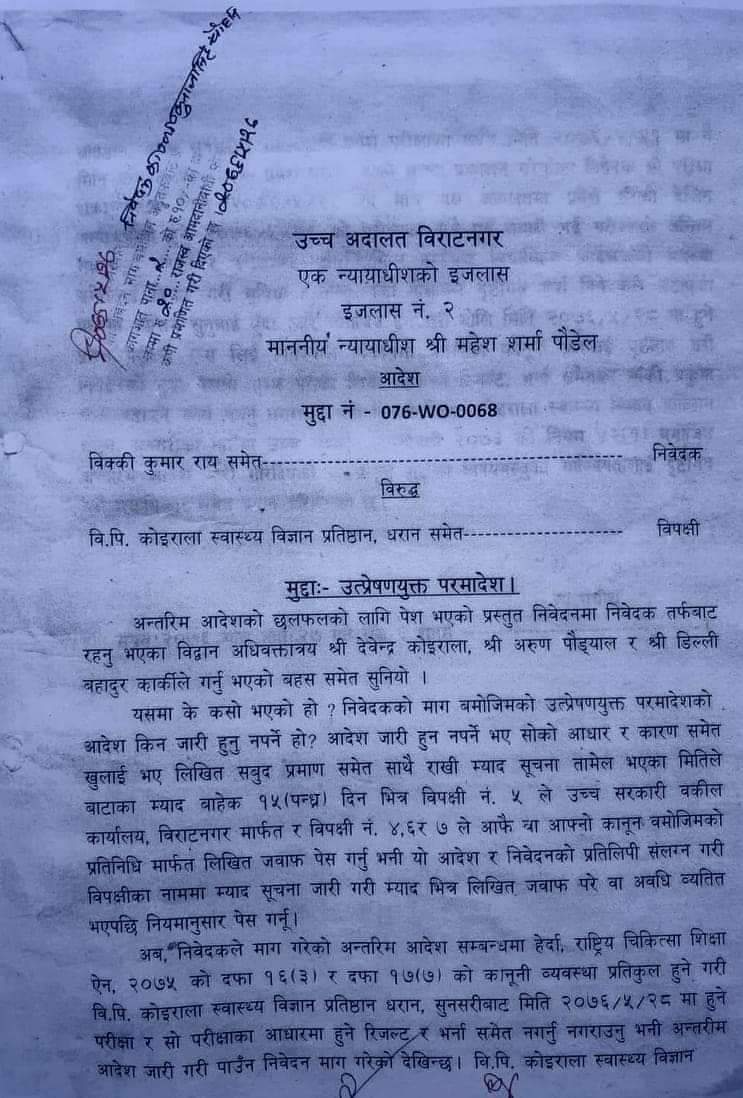 उच्च अदालत विराटनगर
एक न्यायाधीशको इजलास
इजलास नं. २
माननीय न्यायाधीश श्री महेश शर्मा पौडेल
आदेश
मुद्दा नं - 076-WO-0068
विक्की कुमार राय समेत------------------------------------------------ निवेदक
विरुद्ध
वि.पि. कोइराला स्वास्थ्य विज्ञान प्रतिष्ठान, धरान समेत--------------------- विपक्षी
मुद्दाः- उत्प्रेषणयुक्त परमादेश।
अन्तरिम आदेशको छलफलको लागि पेश भएको प्रस्तुत निवेदनमा निवेदक तर्फबाट
रहनु भएका विद्वान अधिवक्तात्रय श्री देवेन्द्र कोइराला, श्री अरुण पौड्याल र श्री डिल्ली
बहादुर कार्कीले गर्नु भएको बहस समेत सुनियो ।
यसमा के कसो भएको हो ? निवेदकको माग बमोजिमको उत्प्रेषणयुक्त परमादेशको
आदेश किन जारी हुनु नपर्ने हो? आदेश जारी हुन नपर्ने भए सोको आधार र कारण समेत
खुलाई भए लिखित सबुद प्रमाण समेत साथै राखी म्याद सूचना तामेल भएका मितिले
बाटाका म्याद बाहेक १५(पन्ध्र) दिन भित्र विपक्षी नं. ५ ले उच्च सरकारी वकील
कार्यालय, विराटनगर मार्फत र विपक्षी नं. ४,६र ७ ले आफै वा आफ्नो कानून वमोजिमको
प्रतिनिधि मार्फत लिखित जवाफ पेस गर्नु भनी यो आदेश र निवेदनको प्रतिलिपी संलग्न गरी
विपक्षीका नाममा म्याद सूचना जारी गरी म्याद भित्र लिखित जवाफ परे वा अवधि व्यतित
भएपछि नियमानुसार पेस गर्नू।
अब, निवेदकले माग गरेको अन्तरिम आदेश सम्बन्धमा हेर्दा, राष्ट्रिय चिकित्सा शिक्षा
ऐन, २०७५ को दफा १६(३) र दफा १७(७) को कानूनी व्यवस्था प्रतिकुल हुने गरी
वि.पि. कोइराला स्वास्थ्य विज्ञान प्रतिष्ठान धरान, सुनसरीबाट मिति २०७६/५/२८ मा हुने
परीक्षा र सो परीक्षाका आधारमा हुने रिजल्ट र भर्ना समेत नगर्नु नगराउनु भनी अन्तरीम
आदेश जारी गरी पाउँन निवेदन माग गरेको देखिन्छ। वि.पि. कोइराला स्वास्थ्य विज्ञान